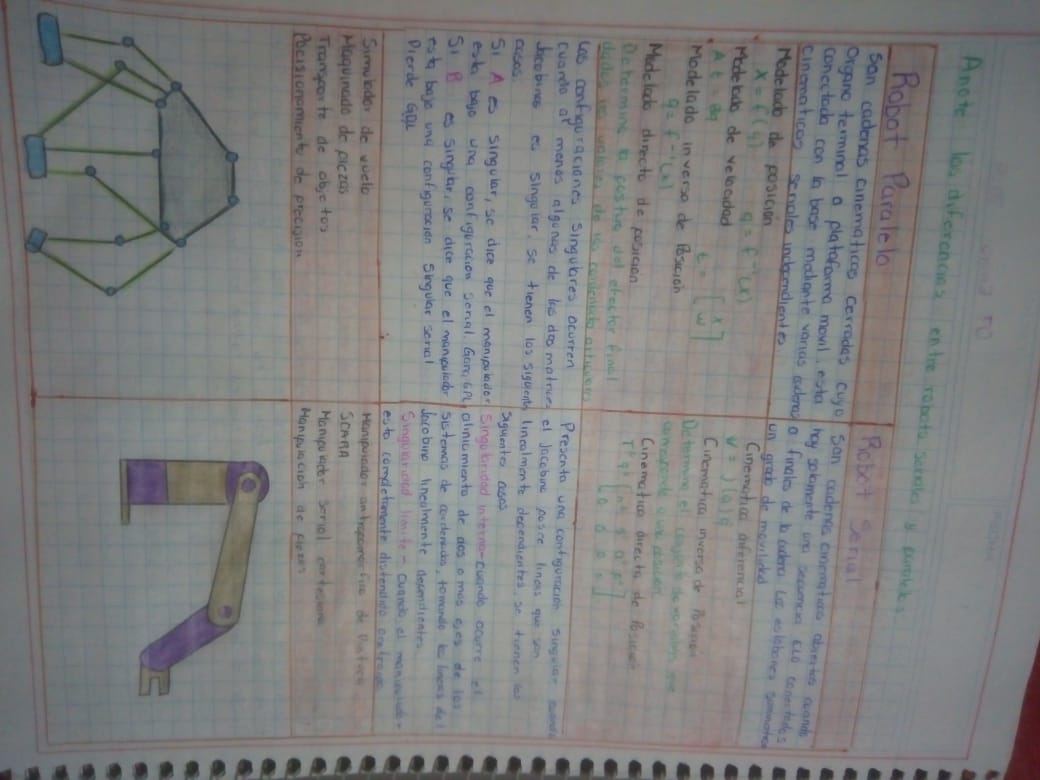 Anote las diferencias entre robots seriales y paralelos
Robot Paralelo
Son cadenas cinematicas cerradas cuyo
organo terminal o plataforma movil esta
conectado con la base mediante varias cadenas
cinematicas seriales independientes
Modelado de posición
x = f(q) q = f⁻¹(x)
Modelado de velocidad
At = Bq t = [ẋ ω]
Modelado inverso de Posición
q = f⁻¹(x)
Modelado directo de posición
Determina la postura del efector final
dados los valores de las
Las configuraciones singulares ocurren
cuando al menos algunas de las dos matrices
Jacobinas es singular, se tienen los siguients
casos:
Si A es singular, se dice que el manipulador
esta bajo una configuración serial. Gana GDL
Si B es singular, se dice que el manipulador
esta bajo una configuración singular serial
Pierde GDL
Simulador de vuelo
Maquinado de piezas
Transporte de objetos
Posicionamiento de precision
Robot serial
Son cadenas cinematicas abiertas cuando
hay solamente una secuencia conectados
a finales de la cadena Los eslabones
un grado de movilidad
Cinematica diferencial
v = J(q)q̇
Cinematica inversa de Posicion
Determina el conjunto de variables que
corresponde a una posicion
Cinematica directa de Posicion
Presenta una configuracion singular cuando
el Jacobino posee lineas que son
linealmente dependientes, se tienen los
siguientes casos
Singularidad Interna - cuando ocurre el
aliniamiento de dos o mas ejes de los
sistemas de cordenadas, tornando las lineas del
Jacobino linealmente dependientes
Singularidad limite - Cuando el manipulador
esta completamente distendido
Manipulador antropomorfico de
SCARA
Manipulador serial cartesiano
Manipulacion de piezas